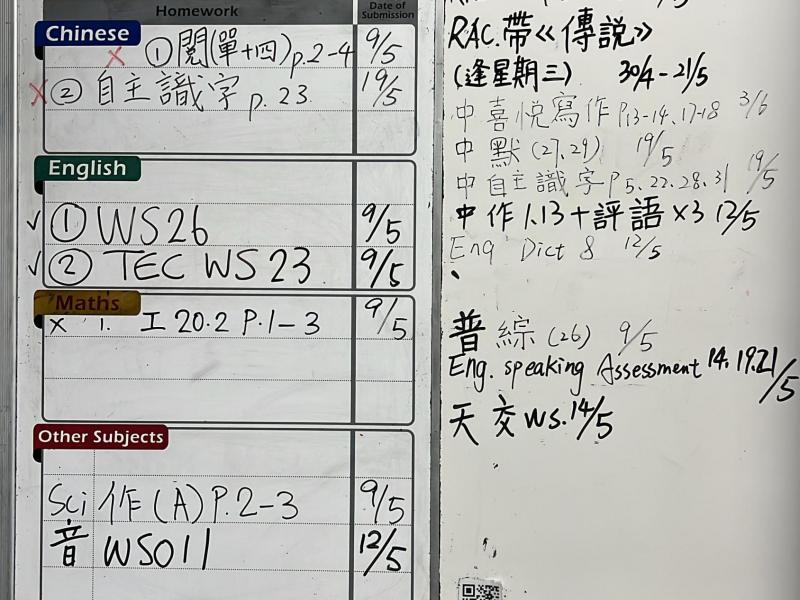 Homework
Date of Submission
Chinese
x ① 閱(單十四)p.2-4 9/5
x ② 自主識字 p.23 19/5
English
✓ ① WS26 9/5
✓ ② TEC WS 23 9/5
Maths
x 1. 工20.2 P.1-3 9/5
Other Subjects
Sci 作(A) P.2-3 9/5
音 WS011 12/5
RAC.帶《傳說》
(逢星期三) 30/4-21/5
中喜悅寫作 P.13-14、17-18 3/6
中 默 (27、29) 19/5
中自主識字 P5、22、28、31 19/5
中 作 1.13+評語×3 12/5
Eng Dict 8 12/5
普 綜 (26) 9/5
Eng. speaking Assessment 14.19.21/5
天 交 WS. 14/5